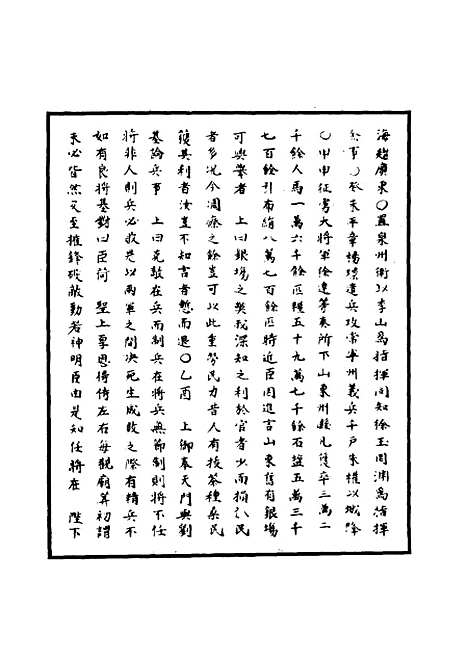 海趨廣東〇置泉州衛以李山為指揮同知徐玉周淵為指揮
僉事〇癸未平章楊璟遣兵攻常寧州義兵千戶朱權以城降
〇甲申征虜大將軍徐達等奏所下山東州縣凡獲卒三萬二
千餘人馬一萬六千餘匹糧五十九萬七千餘石鹽五萬三千
七百餘引布絹八萬七百餘匹時近臣因進言山東舊有銀場
可興舉者　上曰銀場之弊我深知之利於官者少而損於民
者多況今凋瘵之餘豈可以此重勞民力昔人有拔茶種桑民
獲其利者汝豈不知言者慙而退〇乙酉　上御奉天門與劉
基論兵事　上曰克敵在兵而制兵在將兵無節制則將不任
將非人則兵必敗是以兩軍之間決死生成敗之際有精兵不
如有良將基對曰臣荷　聖上厚恩得侍左右每觀廟算初謂
未必皆然及至摧鋒破敵動若神明臣由是知任將在　陛下